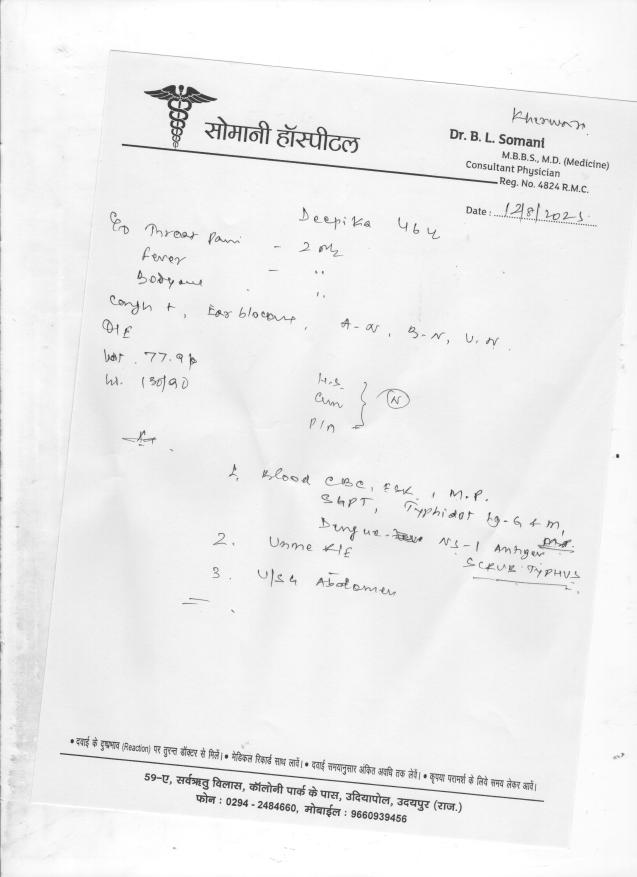 सोमानी हॉस्पीटल
Dr. B. L. Somani
M.B.B.S., M.D. (Medicine)
Consultant Physician
Reg. No. 4824 R.M.C.
Date : 12/8/2023
Deepika 46y
Throat pain - 2
Fever - "
"
Cough +, Ear A-N, B-N, U.N.
O/E
77.9
130/90
H.S.
P/A
} N
1. Blood CBC, ESR, M.P.
SGPT, Typhidot Ig-G & M,
Dengue- NS-1 Antigen
SCRUB TYPHUS
2. Urine R/E
3. U/SG Abdomen
• दवाई के दुष्प्रभाव (Reaction) पर तुरन्त डॉक्टर से मिलें। • मेडिकल रिकार्ड साथ लावें। • दवाई समयानुसार अंकित अवधि तक लेवें। • कृपया परामर्श के लिये समय लेकर आवें।
59-ए, सर्वऋतु विलास, कॉलोनी पार्क के पास, उदियापोल, उदयपुर (राज.)
फोन : 0294 - 2484660, मोबाईल : 9660939456